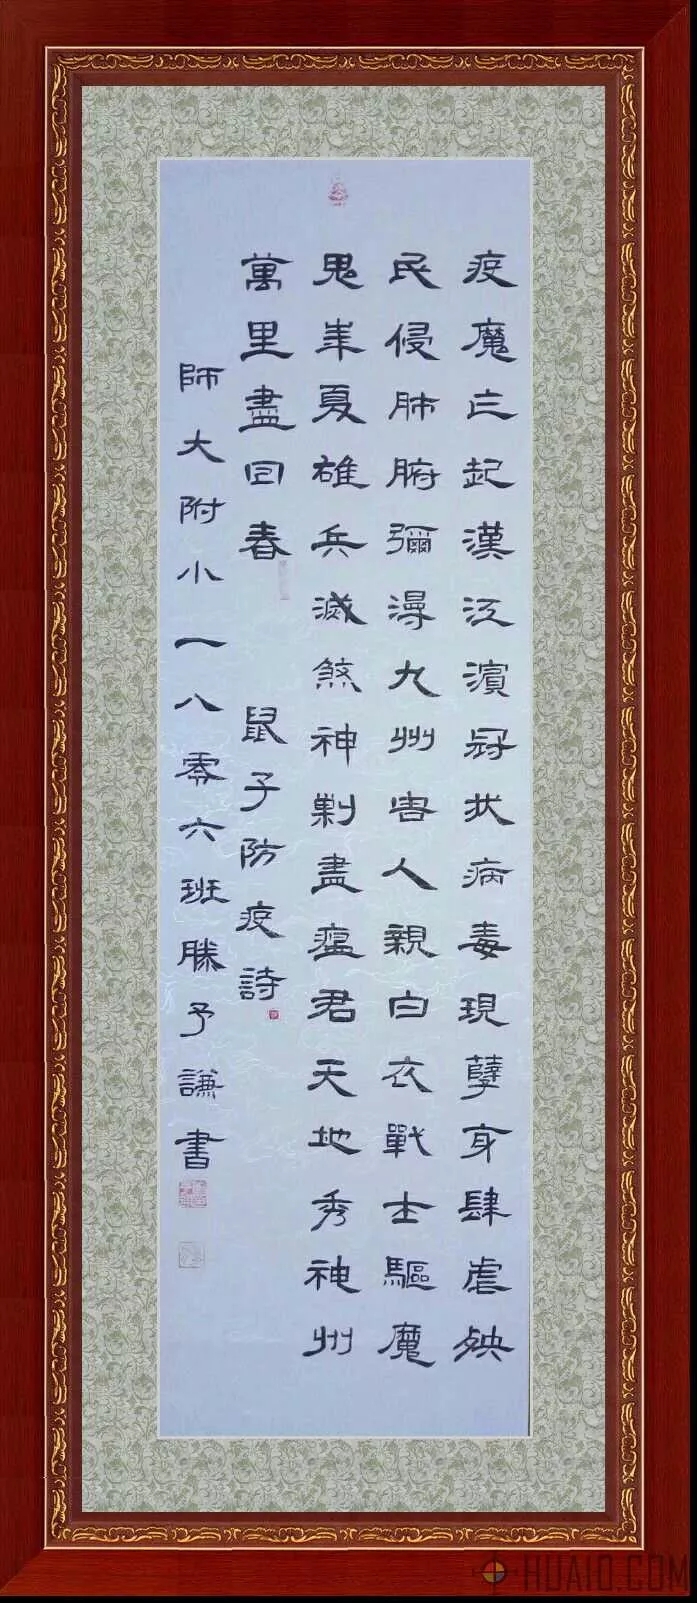 疫魔亡起漢江濱冠状病毒現孽身肆虐殃
民侵肺腑彌漫九州害人親白衣戰士驅魔
鬼華夏雄兵滅煞神剿盡瘟君天地秀神州
萬里盡回春
鼠子防疫詩
師大附小一八零六班滕予謙書
HUAIO.COM